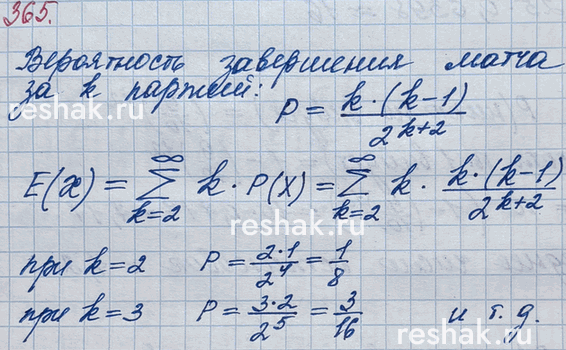 365.
Вероятность завершения матча
за k партий: P = k·(k-1) / 2^(k+2)
reshak.ru
reshak.ru
E(x) = ∞∑k=2 k · P(X) = ∞∑k=2 k · k·(k-1) / 2^(k+2)
reshak.ru
при k=2 P = 2·1 / 2^4 = 1/8
при k=3 P = 3·2 / 2^5 = 3/16 и т.д.
reshak.ru
reshak.ru